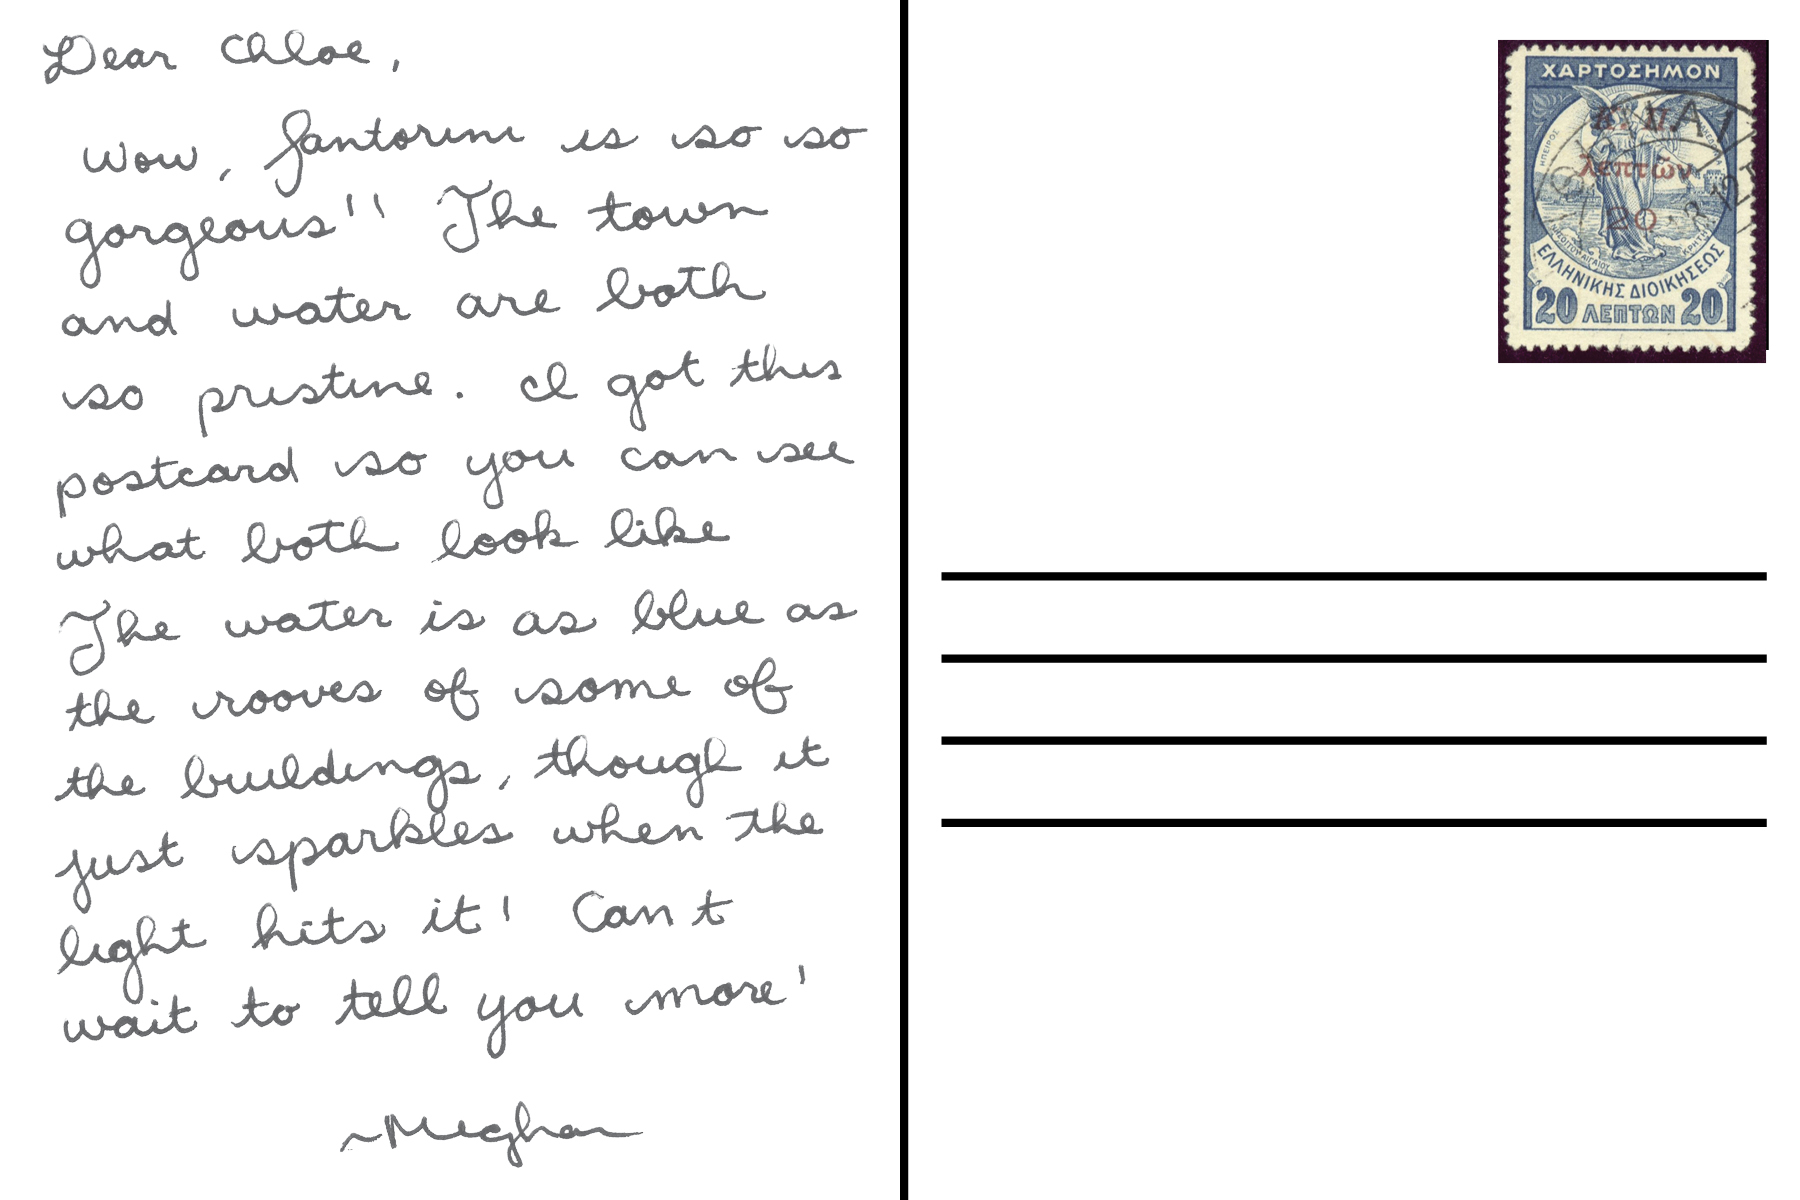 Dear Chloe,
Wow, Santorini is so so
gorgeous!! The town
and water are both
so pristine. I got this
postcard so you can see
what both look like
The water is as blue as
the rooves of some of
the buildings, though it
just sparkles when the
light hits it! Can't
wait to tell you more!
~Meghan
ΧΑΡΤΟΣΗΜΟΝ
λεπτῶν
20
ΗΠΕΙΡΟΣ
ΚΡΗΤΗ
ΕΛΛΗΝΙΚΗΣ ΔΙΟΙΚΗΣΕΩΣ
20 ΛΕΠΤΩΝ 20